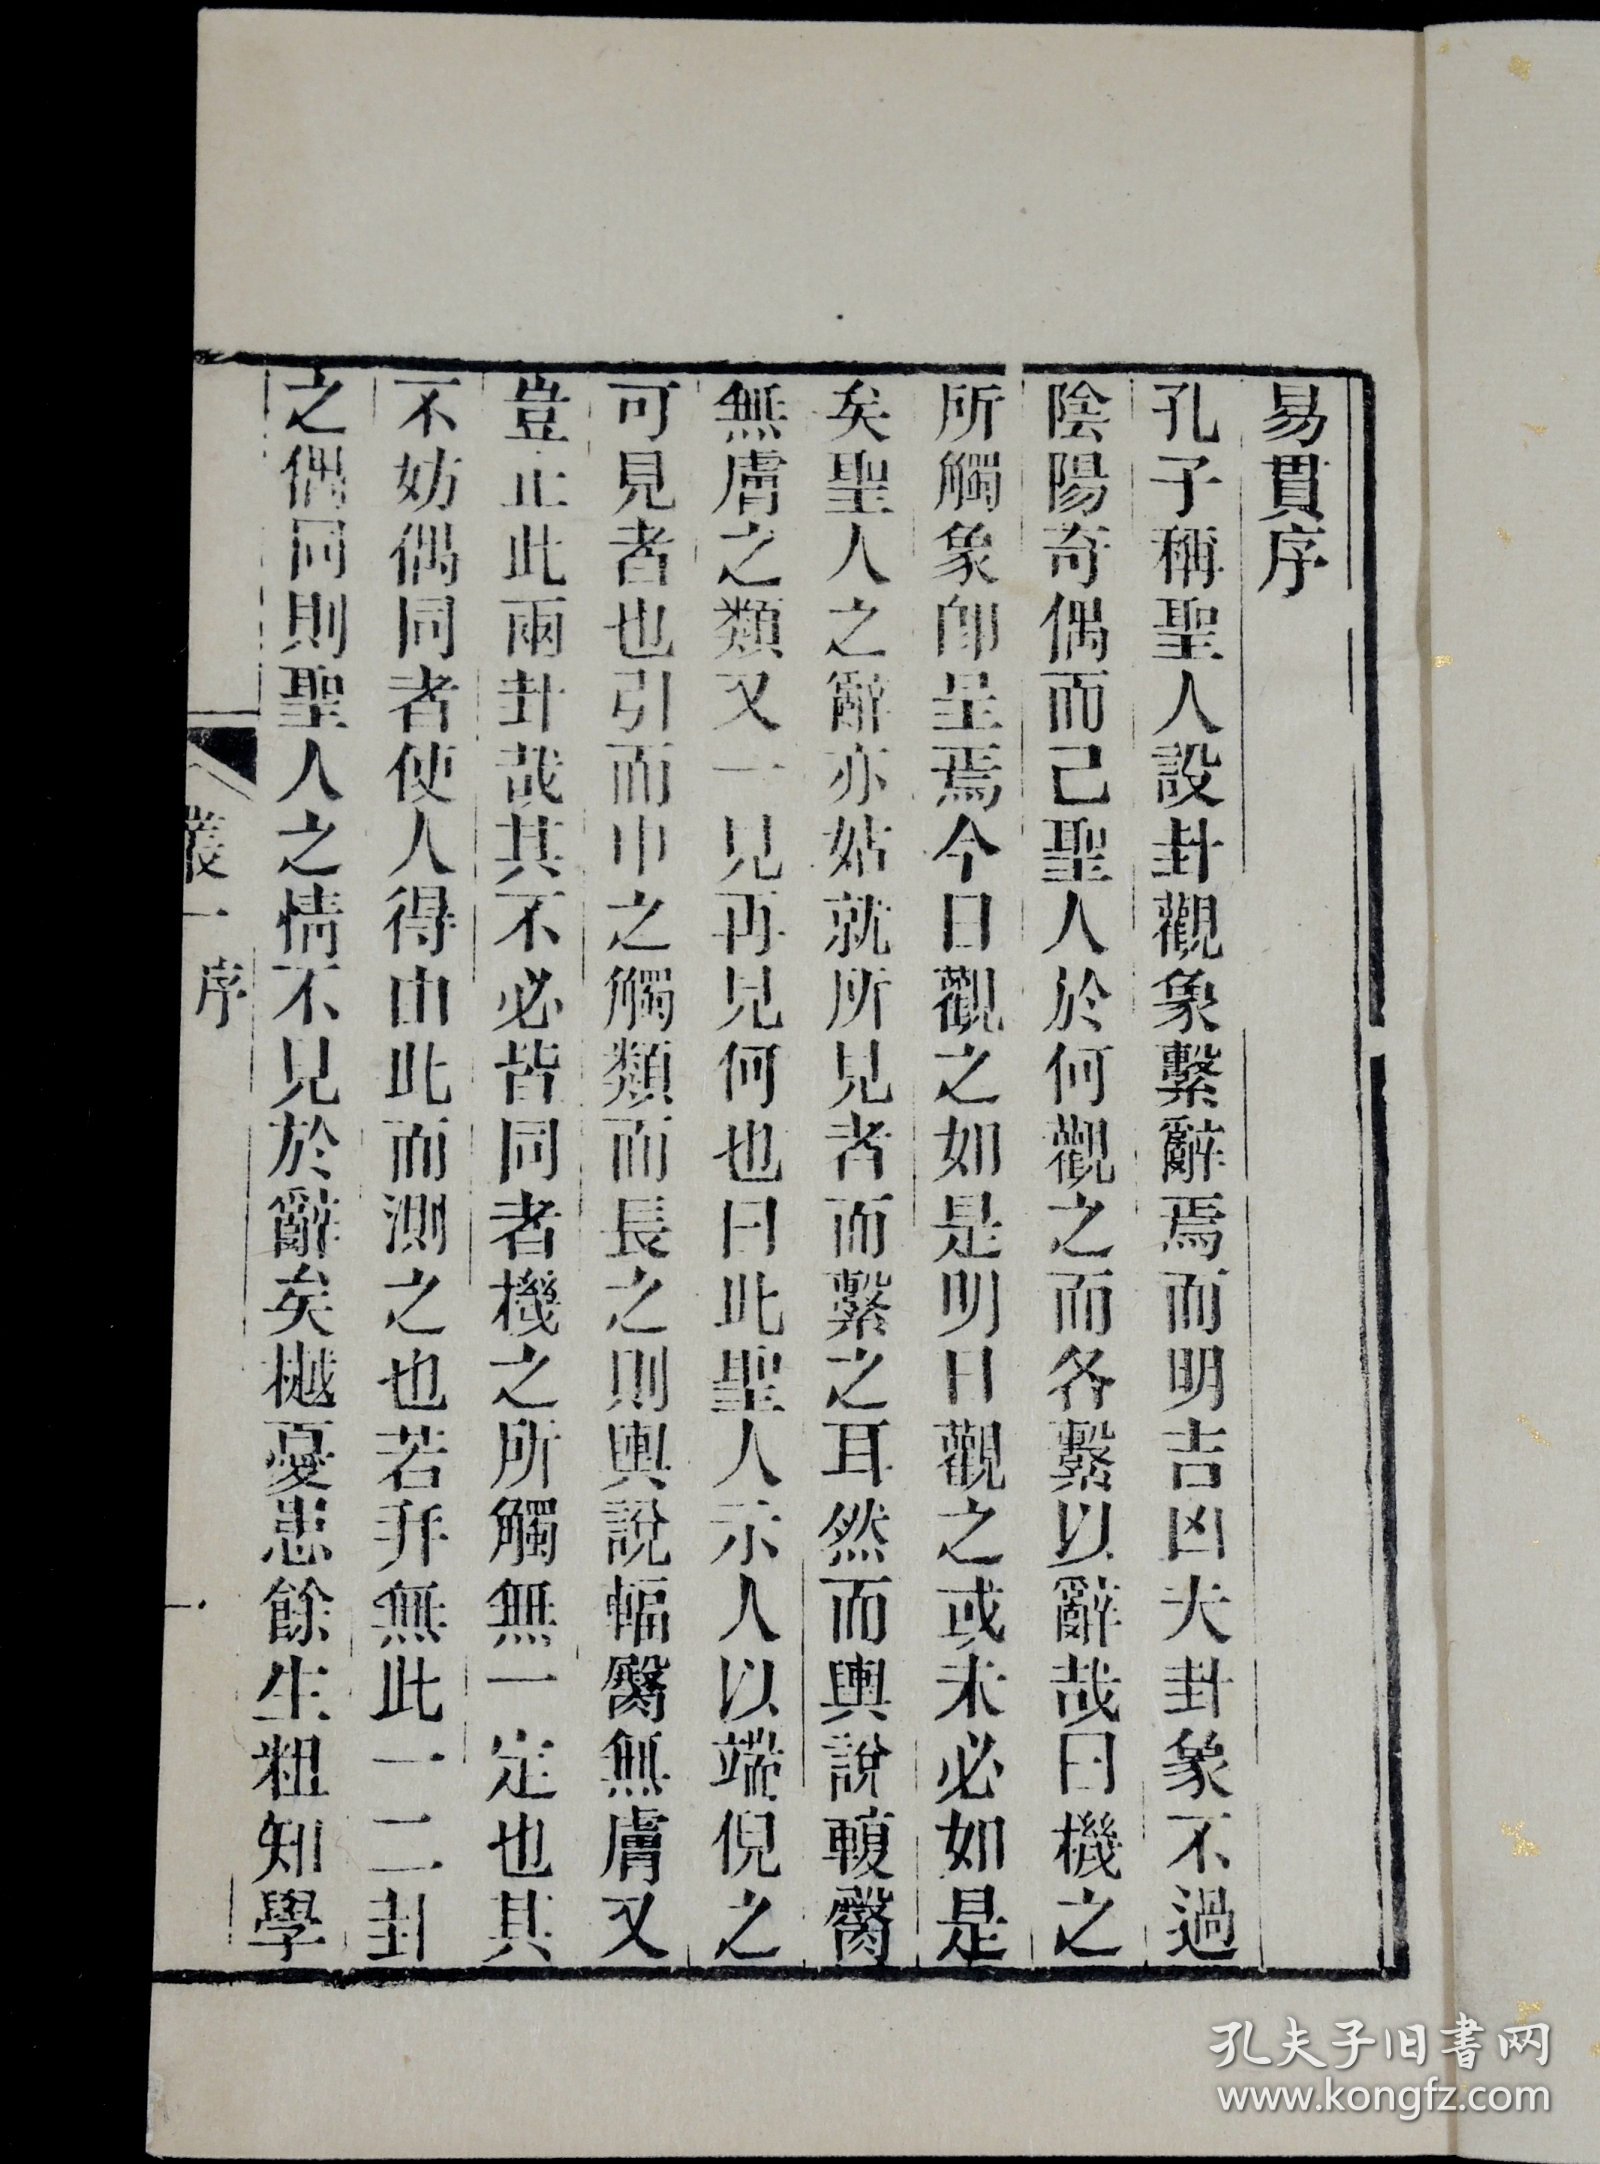 易貫序
孔子稱聖人設卦觀象繫辭焉而明吉凶夫卦象不過
陰陽奇偶而已聖人於何觀之而各繫以辭哉曰機之
所觸象卽呈焉今日觀之如是明日觀之或未必如是
矣聖人之辭亦姑就所見者而繫之耳然而輿說輹臀
無膚之類又一見再見何也曰此聖人示人以端倪之
可見者也引而申之觸類而長之則輿說輻臀無膚又
豈止此兩卦哉其不必皆同者機之所觸無一定也其
不妨偶同者使人得由此而測之也若并無此一二卦
之偶同則聖人之情不見於辭矣樾憂患餘生粗知學
叢一 序
一
孔夫子旧书网
www.kongfz.com